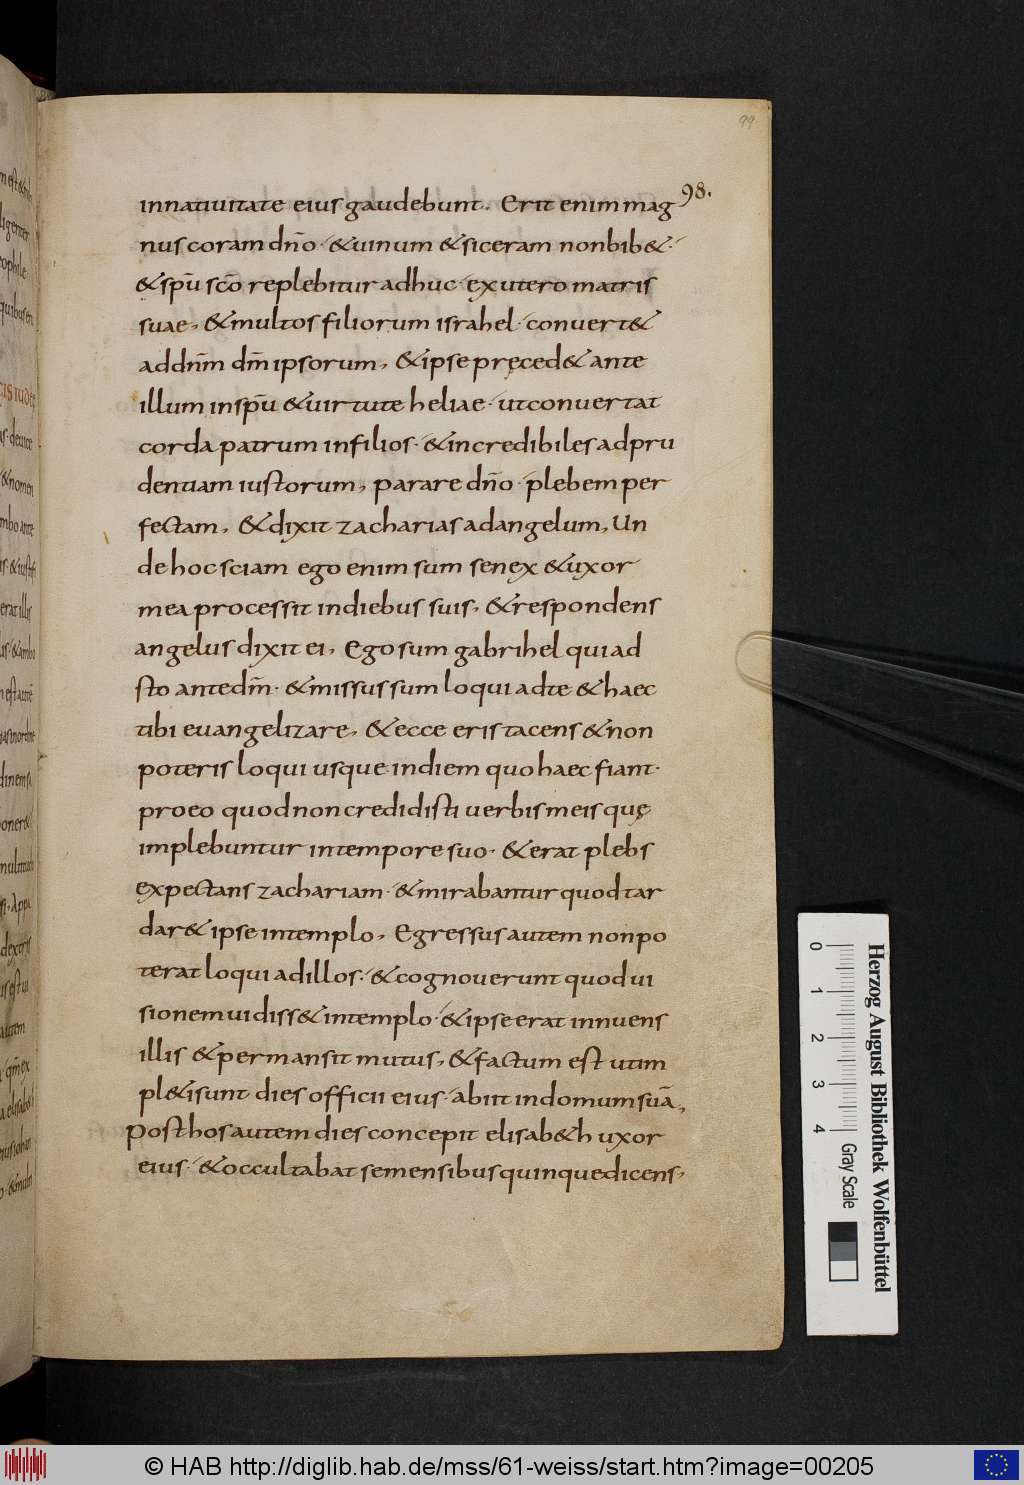 99
98.
innativitate eius gaudebunt. Erit enim mag
nus coram dn̄o · & uinum & siceram non bib& ·
& sp̄u sc̄o replebitur adhuc · ex utero matris
suae, & multos filiorum israhel · conuert&
addn̄m dm̄ ipsorum, & ipse pręced& ante
illum insp̄u & uirtute heliae · ut conuertat
corda patrum infilios · & incredibiles adpru
dentiam iustorum, parare dn̄o · plebem per
fectam, & dixit zacharias adangelum, Un
de hoc sciam ego enim sum senex & uxor
mea processit indiebus suis, & respondens
angelus dixit ei, Ego sum gabrihel qui ad
sto antedm̄ · & missus sum loqui adte & haec
tibi euangelizare, & ecce eris tacens & non
poteris loqui usque indiem quo haec fiant ·
proeo quod non credidisti uerbis meis quę
implebuntur intempore suo · & erat plebs
expectans zachariam · & mirabantur quod tar
dar& ipse intemplo, Egressus autem non po
terat loqui adillos · & cognouerunt quod ui
sionem uidiss& intemplo · & ipse erat innuens
illis & permansit mutus, & factum est ut im
pl&i sunt dies officii eius · abiit indomum suā,
Post hos autem dies concepit elisab&h uxor
eius · & occultabat se mensibus quinque dicens,
0 1 2 3 4
Gray Scale
Herzog August Bibliothek Wolfenbüttel
© HAB http://diglib.hab.de/mss/61-weiss/start.htm?image=00205